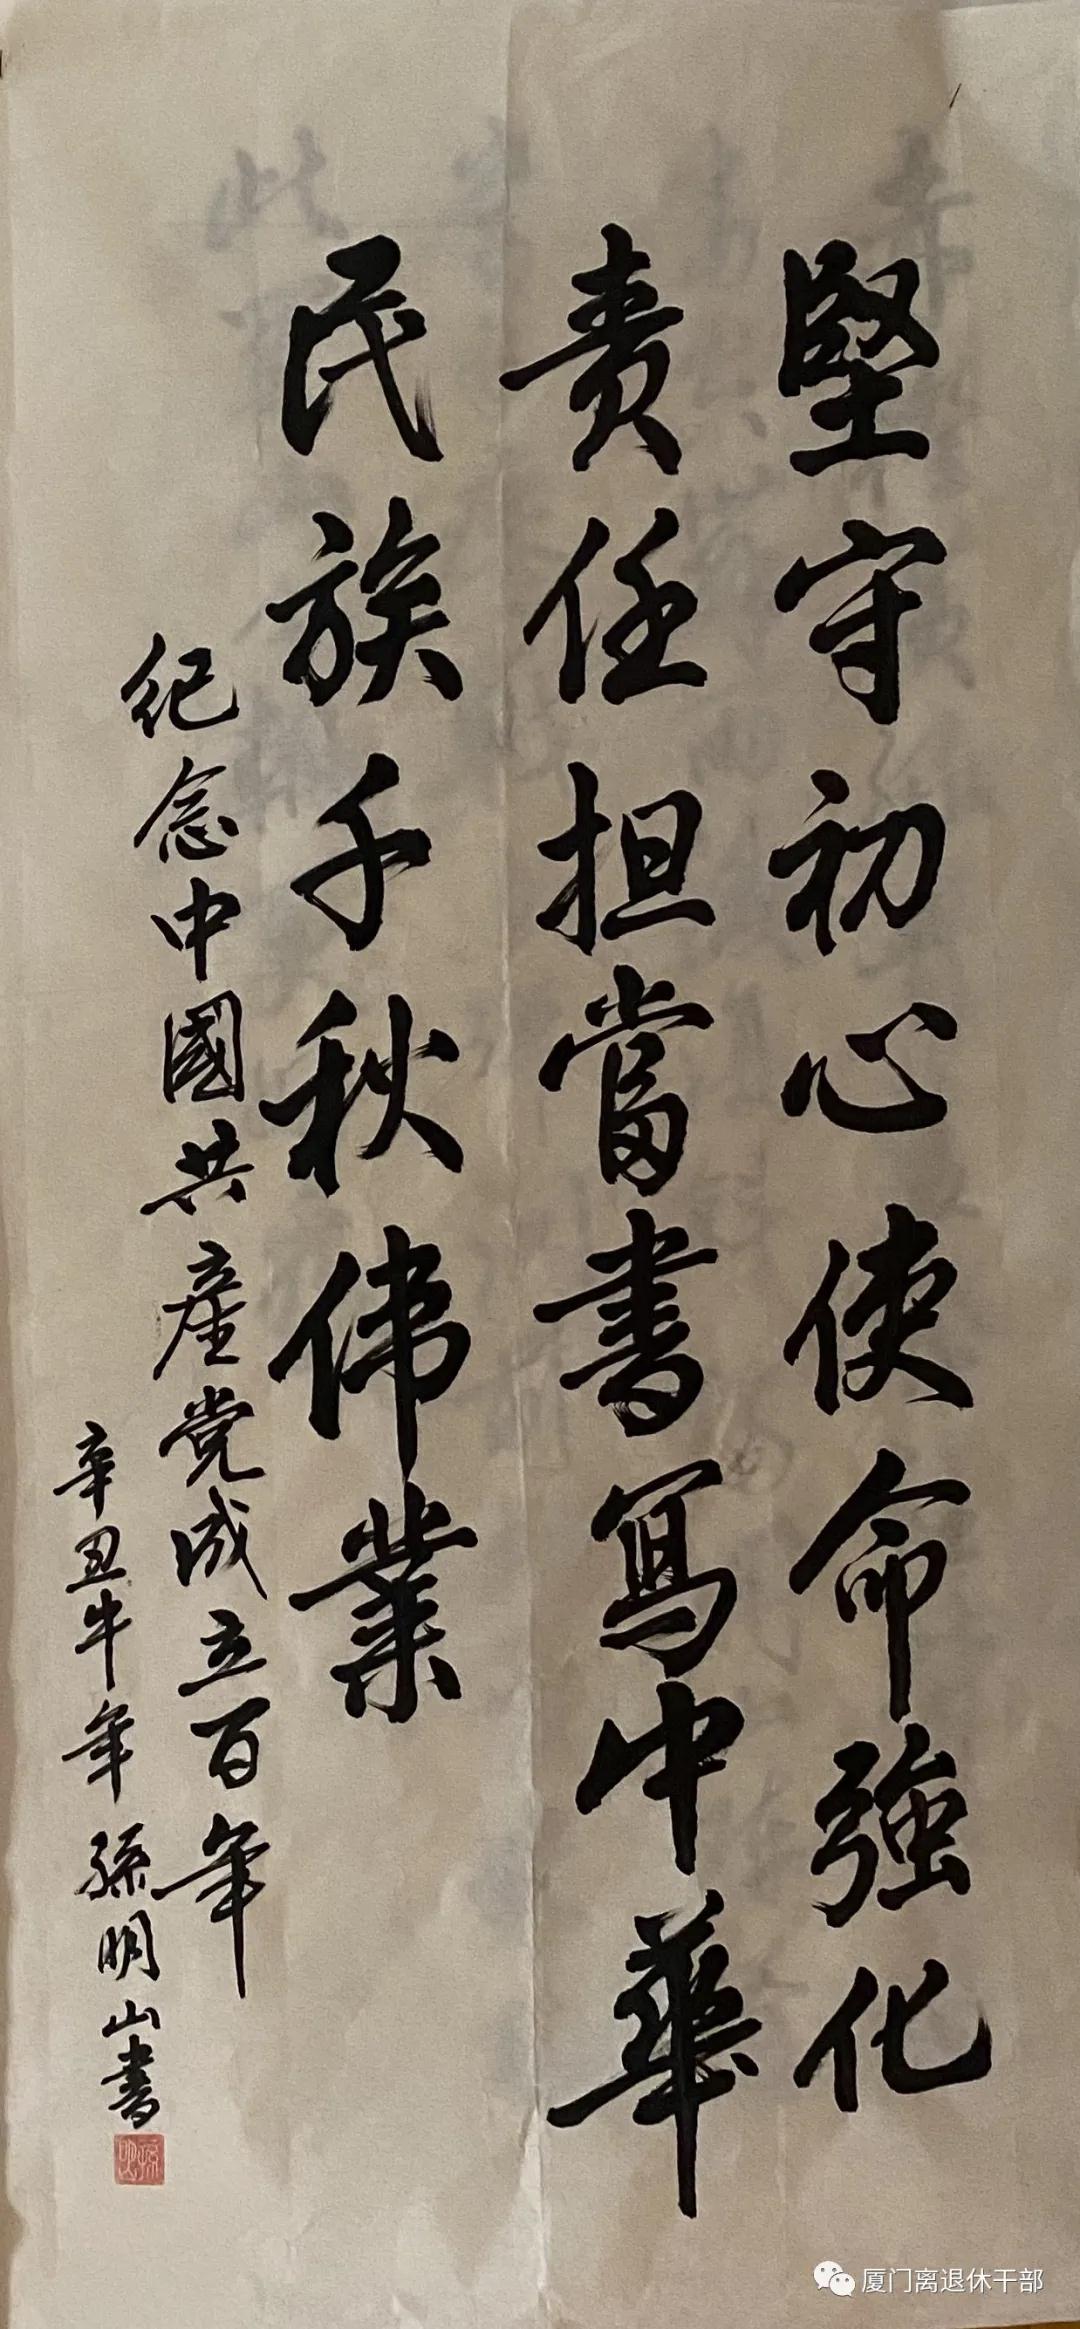 堅守初心使命強化
责任担當書寫中華
民族千秋伟業
纪念中國共產党成立百年
辛丑牛年 孫明山書
厦门离退休干部